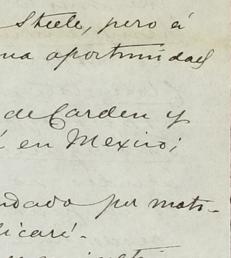 Steele, pero á
una oportunidad
de Carden y
en Mexico;
ndado por moti-
licaré.